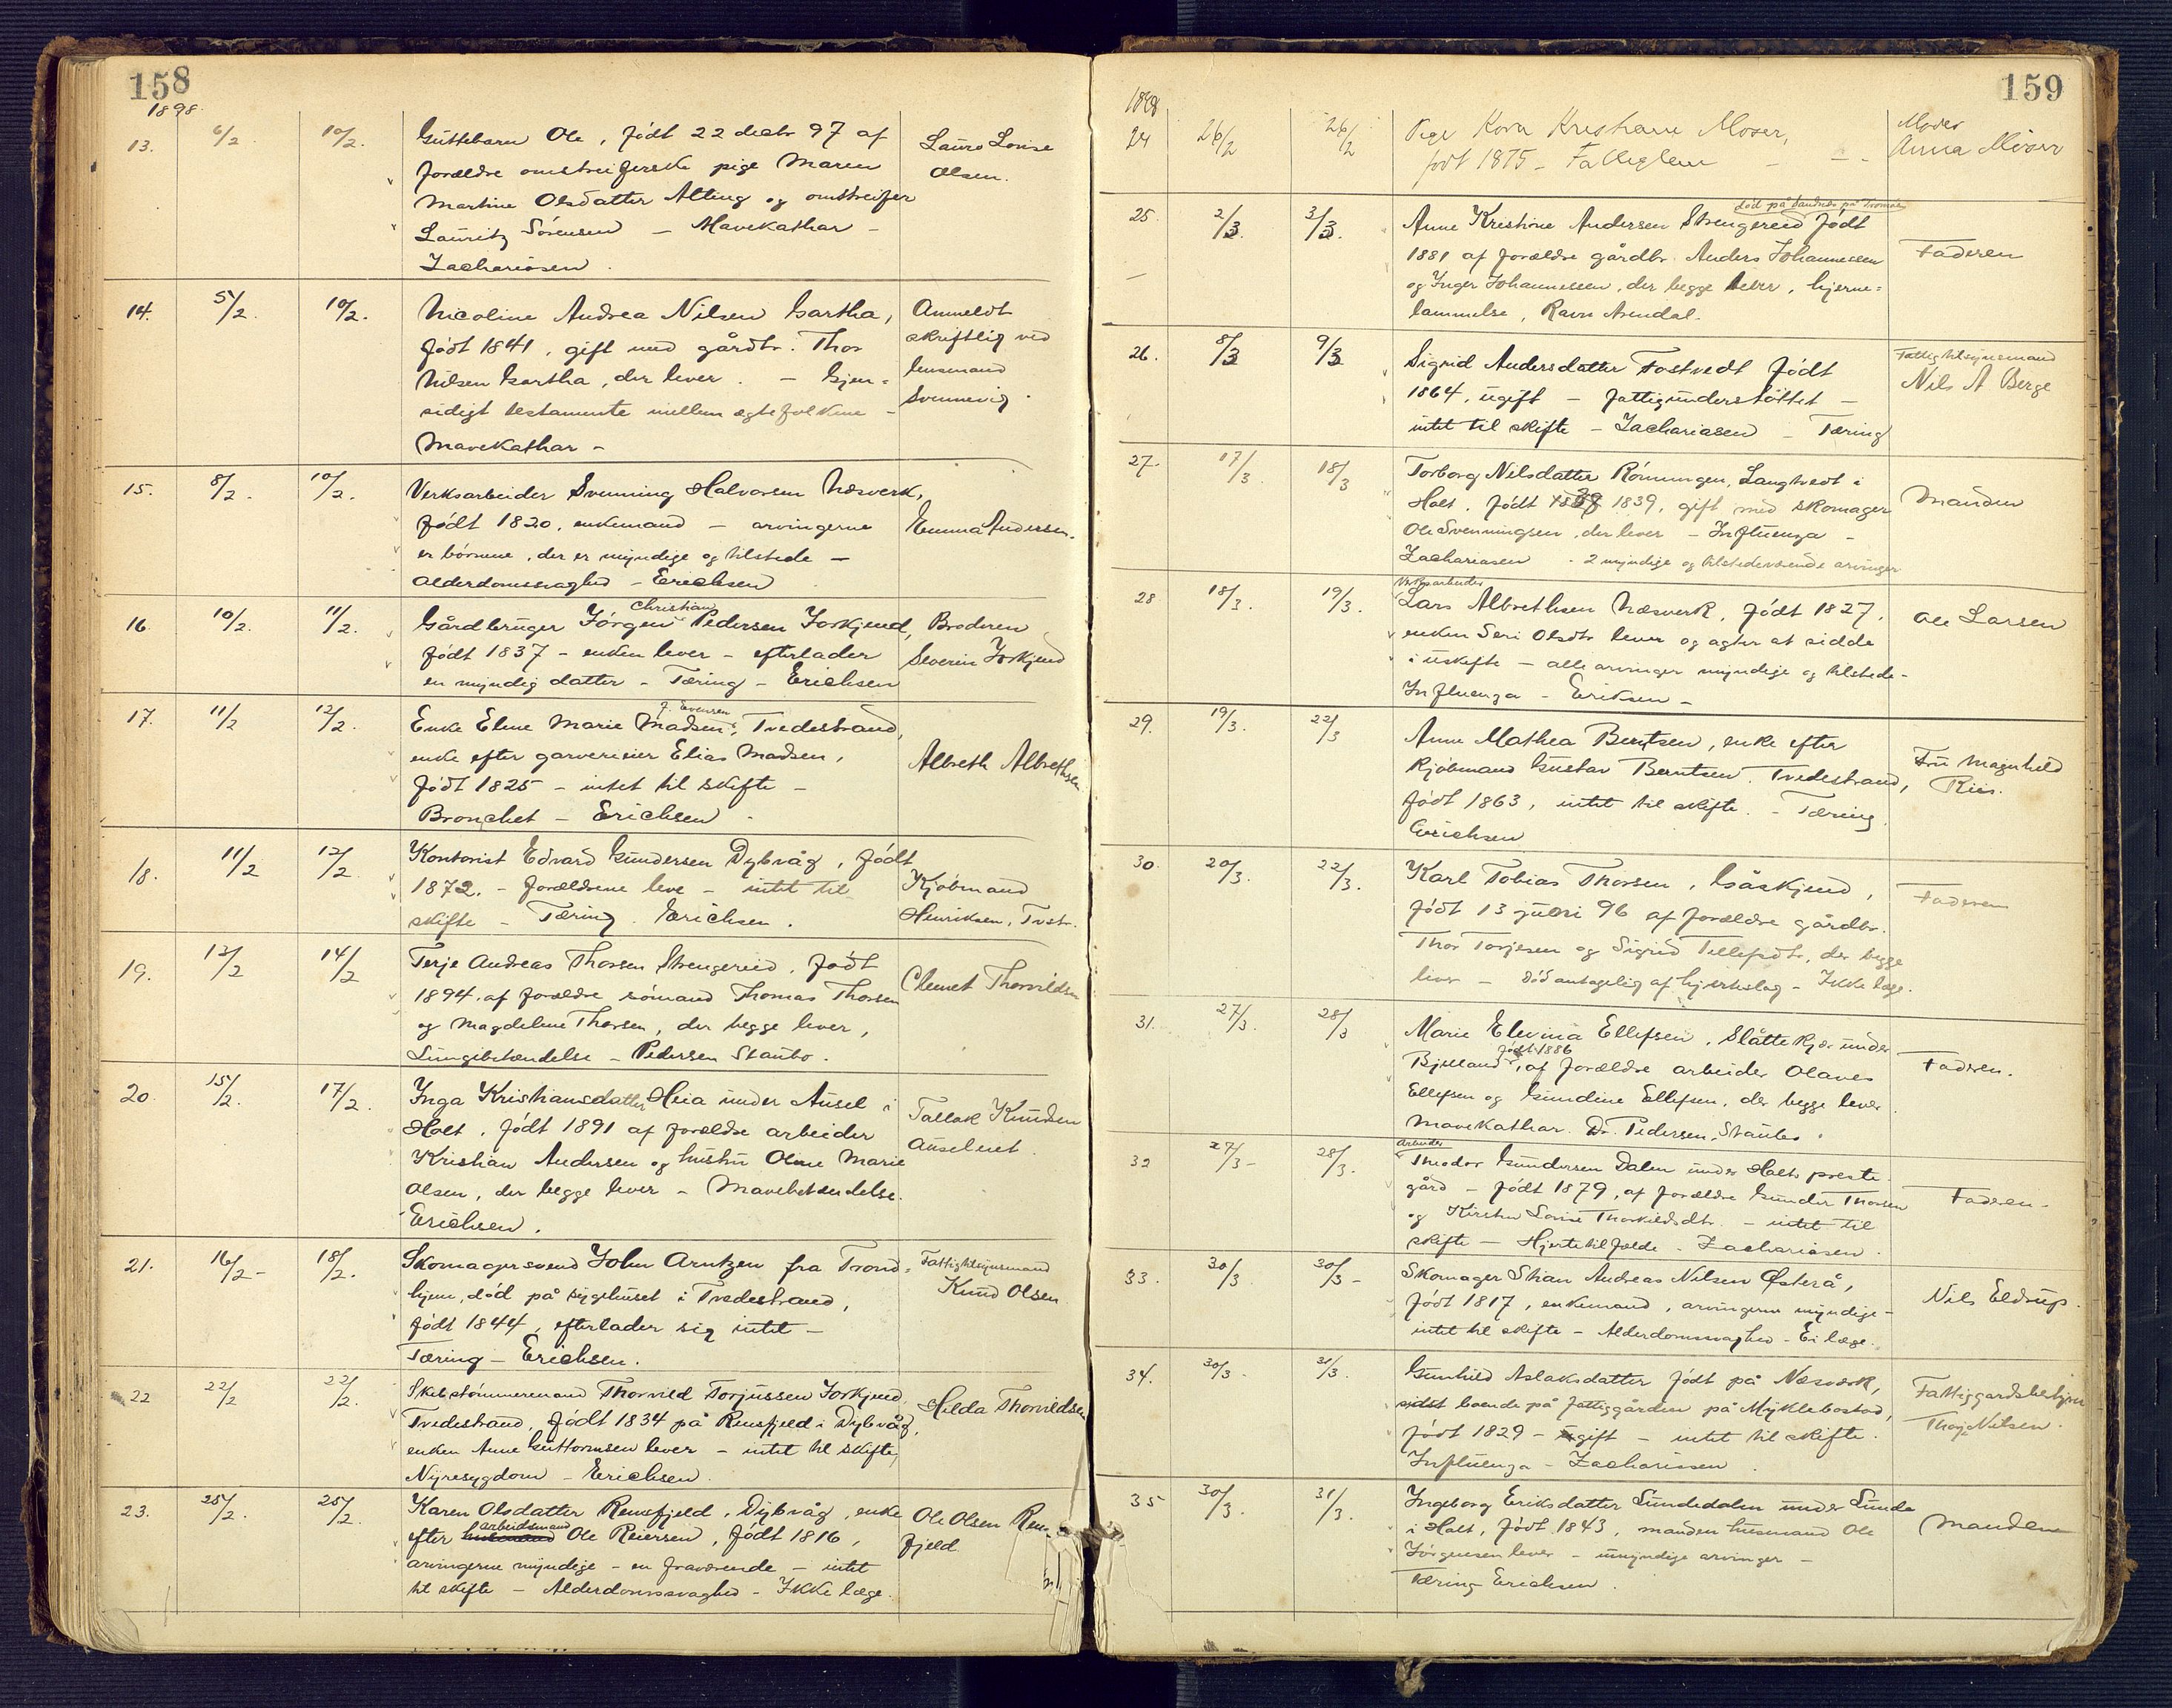 158
1898.
13. 6/2 10/2. Guttebarn Ole, født 22 decbr 97 af
forældre omstreiferske pige Maren
Martine Olsdatter Alting og omstreifer
Lauritz Sörensen – Mavekathar –
Zachariasen.
Laura Lovise
Olsen.
14. 5/2. 10/2. Nicoline Andrea Nilsen Gartha,
født 1841, gift med gårdbr. Thor
Nilsen Gartha, der lever. – Gjen-
sidigt testamente mellem ægtefolkene –
Mavekathar –
Anmeldt
skriftlig ved
lensmand
Svennevig.
15. 8/2. 10/2. Verksarbeider Svenning Halvorsen Næsverk,
født 1820, enkemand – arvingerne
er börnene, der er myndige og tilstede –
Alderdomssvaghed – Erichsen
Emma Andersen.
16. 10/2. 11/2. Gårdbruger Jörgen Christian Pedersen Jorkjend,
født 1837 – enken lever – efterlader
en myndig datter – Tæring – Erichsen
Broderen
Severin Jorkjend
17. 11/2 12/2. Enke Eline Marie Madsen f. Evensen, Tvedestrand,
enke efter garverieier Elias Madsen,
født 1825 – intet til skifte –
Bronchet – Erichsen
Albreth Albrethsen
18. 11/2 12/2 Kontorist Edvard Gundersen Dybvåg, født
1872. – forældrene leve – intet til
skifte – Tæring. Erichsen.
Kjöbmand
Henriksen, Tvstr.
19. 13/2 14/2 Terje Andreas Thorsen Strengereid, født
1894, af forældre sömand Thomas Thorsen
og Magdelene Thorsen, der begge lever,
Lungebetændelse – Pedersen Staubo.
Clemet Thorvildsen
20. 15/2. 17/2. Inga Kristiansdatter Heia under Ausel i
Holt, født 1891 af forældre arbeider
Kristian Andersen og hustru Oline Marie
Olsen, der begge lever – Mavebetændelse.
Erichsen.
Tallak Knudsen
Auselnet.
21. 16/2 – 18/2. Skomagersvend John Arntzen fra Trond-
hjem, död på sygehuset i Tvedestrand,
født 1844, efterlader sig intet –
Tæring – Erichsen.
Fattigtilsynsmand
Knud Olsen
22 22/2 22/2. Skibstömmermand Thorvild Torjussen Jorkjend,
Tvedestrand, født 1834 på Rensfjeld i Dybvåg,
enken Anne Guttormsen lever – intet til skifte,
Nyresygdom – Erichsen.
Hilda Thorvildsen
23. 25/2. 25/2. Karen Olsdatter Rensfjeld, Dybvåg, enke
efter arbeidsmand Ole Reiersen, født 1816,
arvingerne myndige – en fraværende – intet
til skifte – Alderdomssvaghed – Ikke læge.
Ole Olsen Rens-
fjeld.
159
1898
24 26/2 26/2 Pige Kora Kristiane Moser,
født 1875 – Fattiglem –
Moder
Anna Moser
25. 2/3. 3/3. Anne Kristine Andersen Strengereid født
død på Sandnes på Tromøen
1881 af forældre gårdbr. Anders Johannessen
og Inger Johannessen, der begge lever, hjerne-
lammelse, Ravn Arendal.
Faderen
26. 8/3 9/3 Sigrid Andersdatter Fostvedt født
1864, ugift – fattigunderstöttet –
intet til skifte – Zachariasen – Tæring
Fattigtilsynsmand
Nils A Berge
27. 17/3. 18/3 Torborg Nilsdatter Römningen, Langtvedt i
Holt. født 1839, gift med skomager
Ole Svenningsen, der lever – Influenza –
Zachariasen – 2 myndige og tilstedeværende arvinger
Manden
28 18/3. 19/3. Verksarbeider
Lars Albrethsen Næsverk, født 1827,
enken Seri Olsdtr lever og agter at sidde
i uskifte – alle arvinger myndige og tilstede –
Influenza – Eriksen –
Ole Larsen
29. 19/3. 22/3 Anne Mathea Berntsen, enke efter
Kjöbmand Gustav Berntsen. Tvedestrand,
født 1863, intet til skifte. – Tæring
Erichsen
Fru Magnhild
Riis.
30. 20/3. 22/3. Karl Tobias Thorsen, Gåskjend,
født 13 juni 96 af forældre gårdbr.
Thor Torjesen og Sigrid Tellefsdtr, der begge
lever – död antagelig af hjerteslag – Ikke læge.
Faderen
31. 27/3. 28/3 Marie Elevina Ellefsen, Slåttekjær under
Bjelland, født 1886 af forældre arbeider Olaves
Ellefsen og Gundine Ellefsen, der begge lever.
Mavekathar. Dr. Pedersen, Staubo.
Faderen.
32 27/3 – 28/3. Arbeider
Theodor Gundersen Dalen under Holts preste-
gård – født 1879, af forældre Gunder Thorsen
og Kirsten Lovise Thorkildsdtr. – intet til
skifte – Hjertetilfælde – Zachariasen.
Faderen –
33. 30/3. 30/3 – Skomager Stian Andreas Nilsen Østerå,
født 1817, enkemand, arvingerne myndige –
intet til skifte – Alderdomssvaghed – Ei læge.
Nils Eldrup.
34. 30/3 – 31/3. Gunhild Aslaksdatter født på Næsverk,
sidst boende på fattiggården på Myklebostad,
født 1829 – ugift – intet til skifte.
Influenza – Zachariasen.
Fattiggårdsbestyrer
Thorje Nilsen.
35 30/3. 31/3. Ingeborg Eriksdatter Lundedalen under Lunde
i Holt, født 1843, manden husmand Ole
Jörgensen lever – umyndige arvinger –
Tæring Erichsen.
Manden